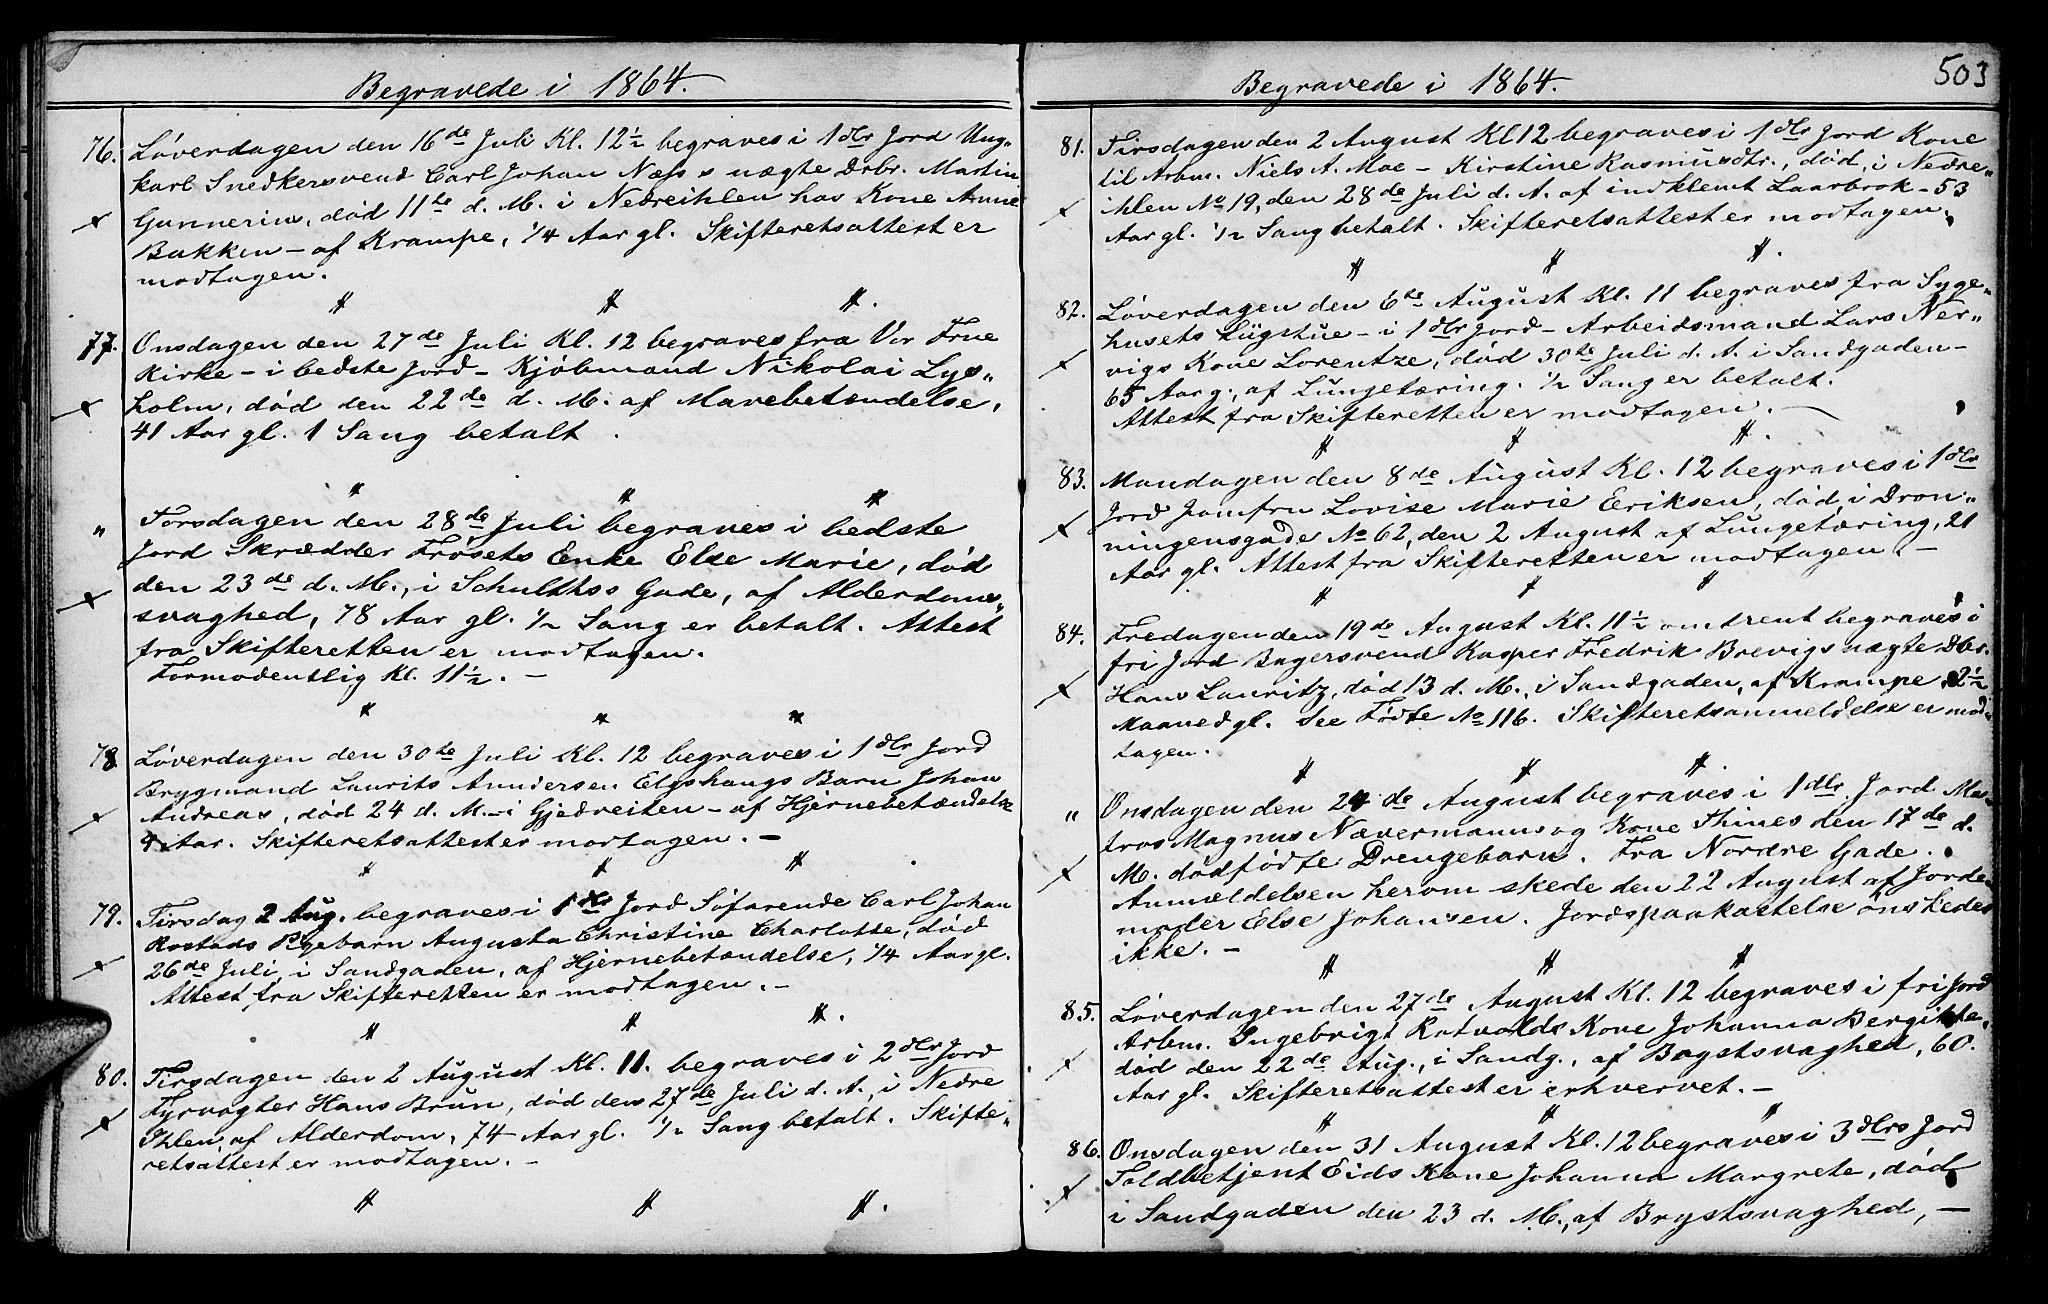 Begravede i 1864.
76. Löverdagen den 16de Juli Kl. 12½ begraves i 1 dlr Jord Ung-
karl Snedkersvend Carl Johan Næss s uægte Drbr. Martin
Gunnerius, död 11te d. M. i Nedreihlen hos Kone Anne
Bakken – af Krampe, ¼ Aar gl. Skifteretsattest er
modtagen.
77. Onsdagen den 27de Juli Kl. 12 begraves fra Vor Frue
Kirke – i bedste Jord – Kjöbmand Nikolai Lys-
holm, död den 22de d. M. af Mavebetændelse,
41 Aar gl. 1 Sang betalt.
" Torsdagen den 28de Juli begraves i bedste
Jord Skrædder Frösets Enke Else Marie, död
den 23de d. M., i Schultzes Gade, af Alderdoms-
svaghed, 78 Aar gl. ½ Sang er betalt. Attest
fra Skifteretten er modtagen.
Formodentlig Kl. 11½. –
78 Löverdagen den 30te Juli Kl. 12 begraves i 1 dlr Jord
Brygmand Laurits Anndersen Elgshaugs Barn Johan
Andreas, död 24 d. M. – i Gjedreiten – af Hjernebetændelse
4 Aar. Skifteretsattest er modtagen. –
79. Tirsdag 2 Aug. begraves i 1 dlr Jord Söfarende Carl Johan
Rostads Pigebarn Augusta Christine Charlotte, död
26de Juli, i Sandgaden, af Hjernebetændelse, ¼ Aar gl.
Attest fra Skifteretten er modtagen. –
80. Tirsdagen den 2 August Kl. 11. begraves i 2 dlrs Jord
Fyrvagter Hans Brun, död den 27de Juli d. A., i Nedre
Ihlen, af Alderdom, 74 Aar gl. ½ Sang betalt. Skifte-
retsattest er modtagen. –
Begravede i 1864.
503
81. Tirsdagen den 2 August Kl 12 begraves i 1 dlrs Jord Kone
til Arbm. Niels A. Moe – Kirstine Rasmusdtr., död, i Nedre-
ihlen No 19, den 28de Juli d. A. af indklemt Laarbrok – 53
Aar gl. ½ Sang betalt. Skifteretsattest er modtagen.
82. Löverdagen den 6te August Kl. 11 begraves fra Syge-
husets Liigstue – i 1 dlr Jord – Arbeidsmand Lars Ner-
vigs Kone Lorentze, död 30te Juli d. A. i Sandgaden –
65 Aar g., af Lungetæring. ½ Sang er betalt.
Attest fra Skifteretten er modtagen.
83. Mandagen den 8de August Kl. 12 begraves i 1 dlrs
Jord Jomfru Lovise Marie Eriksen, död, i Dron-
ningensgade No 62, den 2 August af Lungetæring, 21
Aar gl. Attest fra Skifteretten er modtagen. –
84. Fredagen den 19de August Kl. 11½ omtrent begraves i
fri Jord Bagersvend Kasper Fredrik Brevigs uægte Dbr.
Hans Lauritz, död 13 d. M., i Sandgaden, af Krampe, 2½
Maaned gl. See Födte No 116. Skifteretsanmeldelse er mod-
tagen.
" Onsdagen den 24de August begraves i 1 dlr. Jord Ma-
tros Magnus Nævermanns og Kone Thines den 17de d.
M. dödfödte Drengebarn. Fra Nordre Gade.
Anmeldelsen herom skede den 22 August af Jorde-
moder Else Johansen. Jordspaakastelse önskedes
ikke. –
85. Löverdagen den 27de August Kl. 12 begraves i fri Jord
Arbm. Ingebrigt Rotvolds Kone Johanna Bergitte,
död den 22de Aug., i Sandg., af Brystsvaghed, 60.
Aar gl. Skifteretsattest er erhvervet. –
86. Onsdagen den 31 August Kl. 12 begraves i 3 dlrs Jord
Toldbetjent Eids Kone Johanna Margrete, död
i Sandgaden den 23 d. M., af Brystsvaghed, –